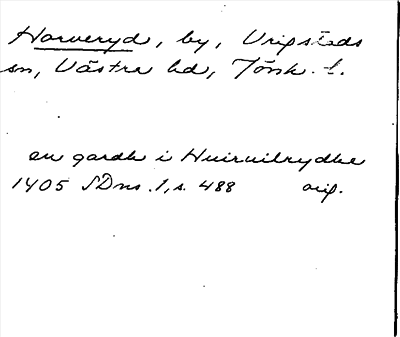 Harveryd, by, Vrigstads
sn, Västra hd, Jönk. l.
en gardh i Huiruilrydhe
1405 SDns. 1, s. 488 orig.